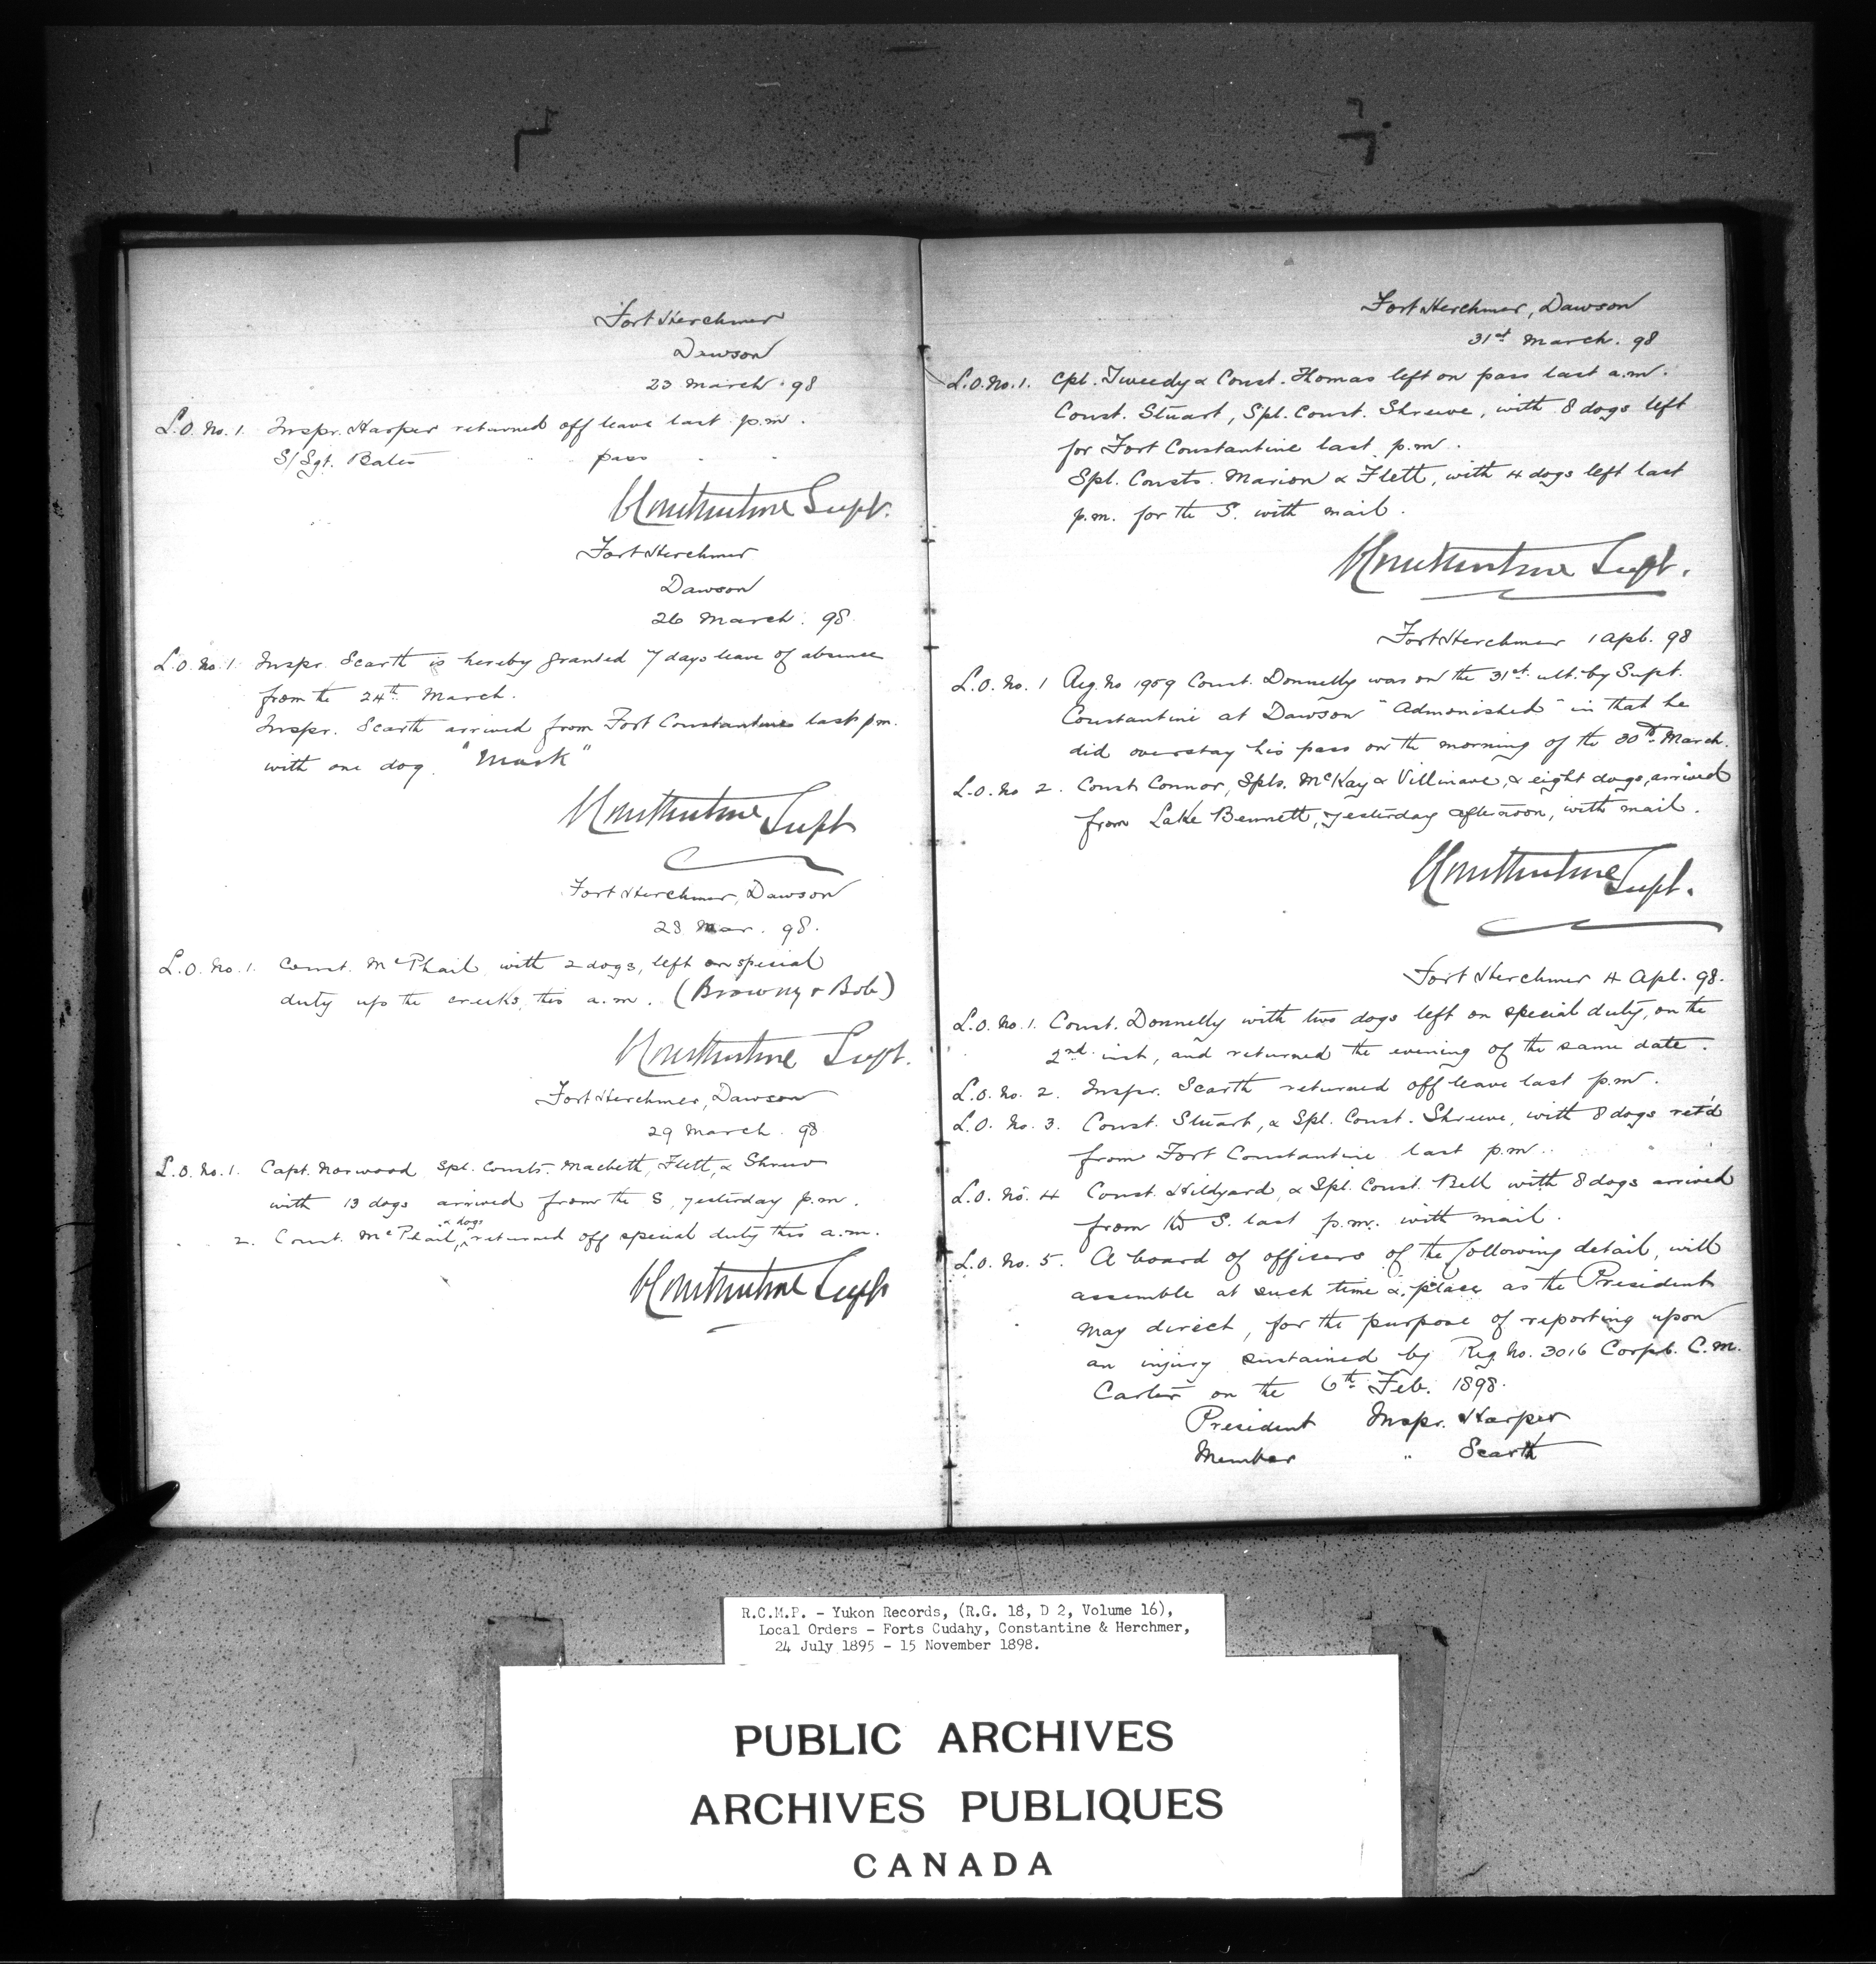 Fort Herchmer
Dawson
23 March. 98
L.O. No. 1. Inspr. Harper returned off leave last p.m.
S/Sgt. Bates " " pass " "
C Constantine Supt.
Fort Herchmer
Dawson
26 March. 98
L.O. No. 1. Inspr. Scarth is hereby granted 7 days leave of absence
from the 24th March.
Inspr. Scarth arrived from Fort Constantine last pm.
with one dog. "Mark"
C Constantine Supt
Fort Herchmer, Dawson
28 Mar. 98.
L.O. No. 1. Const. McPhail with 2 dogs, left on special
duty up the creeks, this a.m. (Browny & Bob)
C Constantine Supt.
Fort Herchmer, Dawson
29 March. 98
L.O. No. 1. Capt. Norwood Spl. Consts. Macbeth, Flett, & Shreve
with 13 dogs arrived from the S. yesterday p.m.
2. Const. McPhail, & dogs returned off special duty this a.m.
C Constantine Supt
Fort Herchmer, Dawson
31st March. 98
L.O. No. 1. Cpl. Tweedy & Const. Thomas left on pass last a.m.
Const. Stuart, Spl. Const. Shreve, with 8 dogs left
for Fort Constantine last p.m.
Spl. Consts. Marion & Flett, with 4 dogs left last
p.m. for the S. with mail.
C Constantine Supt.
Fort Herchmer 1 Apl. 98
L.O. No. 1 Reg. No 1959 Const. Donnelly was on the 31st ult. by Supt.
Constantine at Dawson "Admonished" in that he
did overstay his pass on the morning of the 30th March.
L.O. No 2. Const. Connor, Spls. McKay & Villinave, & eight dogs, arrived
from Lake Bennett, yesterday afternoon, with mail.
C Constantine Supt.
Fort Herchmer 4 Apl. 98.
L.O. No. 1. Const. Donnelly with two dogs left on special duty, on the
2nd inst, and returned the evening of the same date.
L.O. No. 2. Inspr. Scarth returned off leave last p.m.
L.O. No. 3. Const. Stuart, & Spl. Const. Shreve, with 8 dogs ret'd
from Fort Constantine last p.m.
L.O. No. 4 Const. Hildyard, & Spl. Const. Bell with 8 dogs arrived
from the S. last p.m. with mail.
L.O. No. 5. A board of officers of the following detail, will
assemble at such time & place as the President
may direct, for the purpose of reporting upon
an injury sustained by Reg. No. 3016 Corpl. C.M.
Carter on the 6th Feb. 1898.
President Inspr. Harper
Member " Scarth
R.C.M.P. - Yukon Records, (R.G. 18, D 2, Volume 16),
Local Orders - Forts Cudahy, Constantine & Herchmer,
24 July 1895 - 15 November 1898.
PUBLIC ARCHIVES
ARCHIVES PUBLIQUES
CANADA